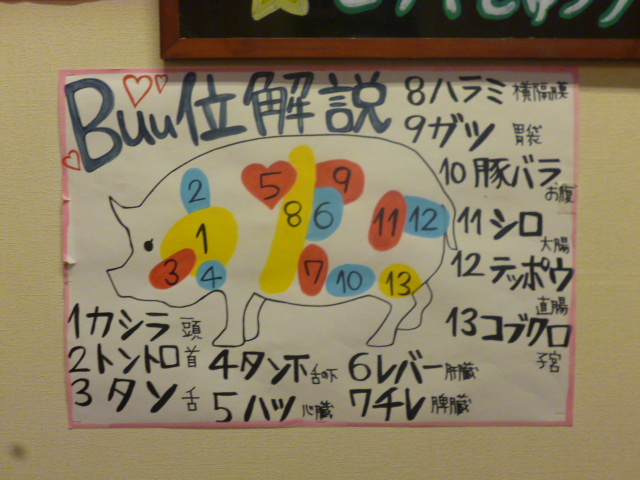 Buu位解説
1カシラ 頭
2トントロ 首
3タン 舌
4タンホ 舌の下
5ハツ 心臓
6レバー 肝臓
7チレ 脾臓
8ハラミ 横隔膜
9ガツ 胃袋
10豚バラ お腹
11シロ 大腸
12テッポウ 直腸
13コブクロ 子宮
2
5
9
8
6
11
12
1
3
4
7
10
13